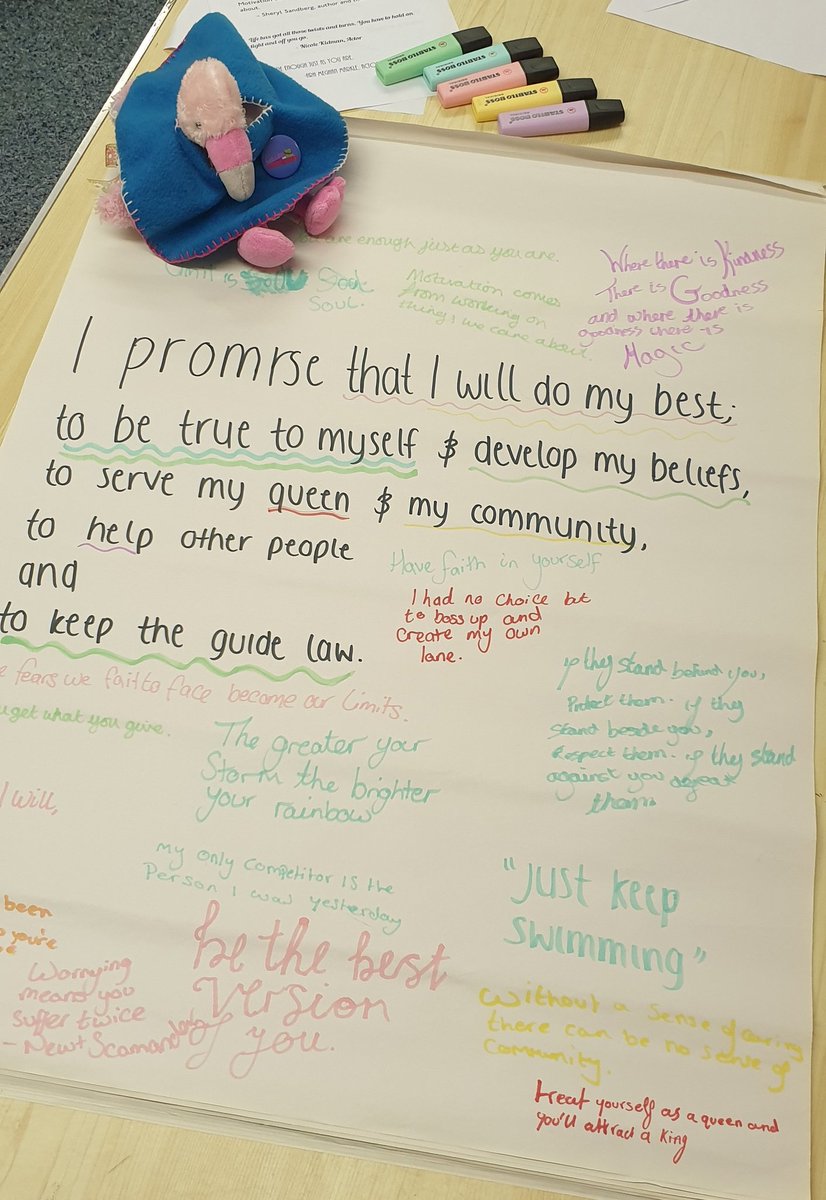 about.
– Sheryl Sandberg, author and
Life has got all those twists and turns. You have to hold on
tight and off you go.
Nicole Kidman, Actor.
ENOUGH JUST AS YOU ARE.
MEGHAN MARKLE,
STABILO BOSS
STABILO BOSS
STABILO BOSS
STABILO BOSS
STABILO BOSS
are enough just as you are.
is Soul
Soul.
Motivation comes
from working on
things we care about.
Where there is Kindness
There is Goodness
and where there is
goodness there is
Magic
I promise that I will do my best;
to be true to myself & develop my beliefs,
to serve my queen & my community,
to help other people
and
to keep the guide law.
Have faith in yourself
I had no choice but
to boss up and
create my own
lane.
fears we fail to face become our limits.
get what you give.
The greater your
Storm the brighter
your rainbow
if they stand behind you,
Protect them. if they
stand beside you,
Respect them. if they stand
against you defeat
them
I will,
My only competitor is the
Person I was yesterday
"just keep
swimming"
been
you're
Worrying
means you
suffer twice
- Newt Scamander
be the best
version
of you.
Without a sense of caring
there can be no sense of
community.
treat yourself as a queen and
you'll attract a king